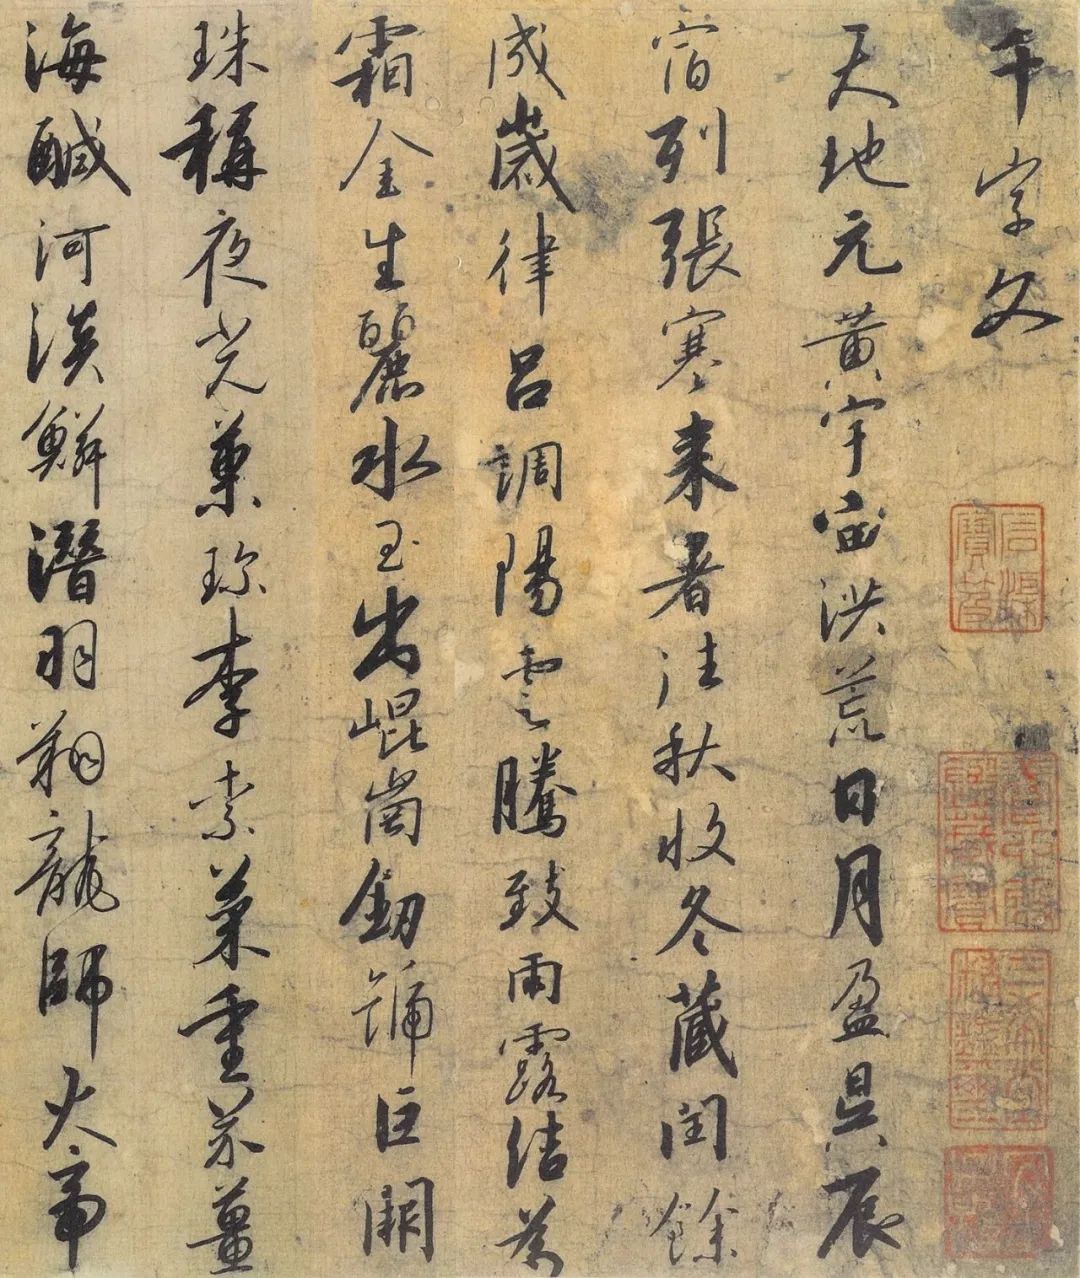 千字文
天地元黄宇宙洪荒日月盈昃辰
宿列張寒来暑往秋收冬藏閏餘
成歲律呂調陽雲騰致雨露結為
霜金生麗水玉出崐崗釼號巨闕
珠稱夜光菓珍李柰菜重芥薑
海醎河淡鱗潛羽翔龍師火帝